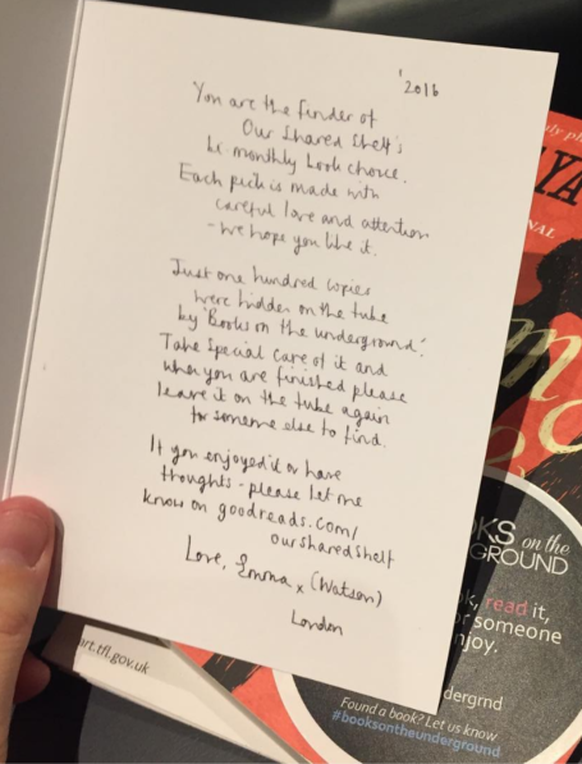 '2016
You are the finder of
Our Shared Shelf's
bi-monthly book choice.
Each pick is made with
careful love and attention
- we hope you like it.
Just one hundred copies
were hidden on the tube
by 'Books on the underground'.
Take special care of it and
when you are finished please
leave it on the tube again
for someone else to find.
If you enjoyed it or have
thoughts - please let me
know on goodreads.com/
oursharedshelf
Love, Emma x (Watson)
London
NAL
OKS on the
GROUND
read it,
or someone
njoy.
dergrnd
Found a book? Let us know
#booksontheunderground
art.tfl.gov.uk